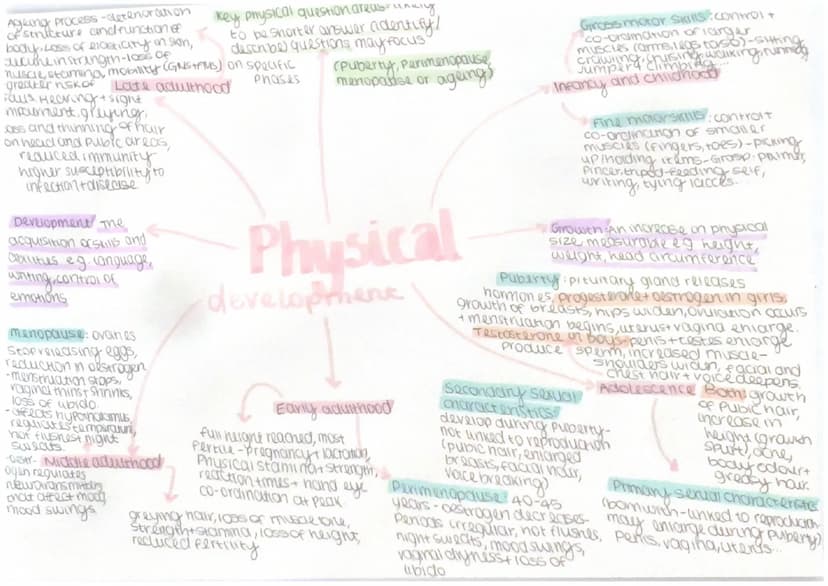 Ageing process - deterioration
of structure and function of
body. Loss of elasticity in skin,
decline in strength - loss of
muscle, stamina, mobility (GMS+FMS)
greater risk of
falls. Hearing + sight
impairment, greying,
loss and thinning of hair
on head and pubic areas,
reduced immunity
higher susceptibility to
infection + disease
Late adulthood
Key physical question areas: likely
to be shorter answer (identify/
describe) questions, may focus
on specific
phases
(puberty, perimenopause,
menopause or ageing)
Gross motor skills: control +
co-ordination of larger
muscles (arms, legs, torso) - sitting,
crawling, cruising, walking, running,
jumping, climbing...
Infancy and childhood
Fine motor skills: control +
co-ordination of smaller
muscles (fingers, toes) - picking
up/holding items - Grasp: palmar,
pincer, tripod - feeding self,
writing, tying laces...
Development: The
acquisition of skills and
abilities e.g. language,
writing, control of
emotions
Physical
development
Growth: An increase in physical
size measurable e.g. height,
weight, head circumference
Puberty: pituitary gland releases
hormones, progesterone + oestrogen in girls.
growth of breasts, hips widen, ovulation occurs
+ menstruation begins, uterus + vagina enlarge.
Testosterone in boys - penis + testes enlarge
produce sperm, increased muscle -
shoulders widen, facial and
chest hair + voice deepens.
Adolescence
Both: growth
of pubic hair,
increase in
height (growth
spurt), acne,
body odour +
greasy hair.
menopause: ovaries
stop releasing eggs,
reduction in oestrogen
- menstruation stops,
vaginal thins + shrinks,
loss of libido.
- affects hypothalamus,
regulates temperature,
hot flushes + night
sweats.
- oestr-
ogen regulates
neurotransmitters
that affect mood,
mood swings.
Middle adulthood
greying hair, loss of muscle tone,
strength + stamina, loss of height,
reduced fertility
Early adulthood
full height reached, most
fertile - pregnancy + lactation,
Physical stamina + strength,
reaction times + hand eye
co-ordination at peak.
Secondary sexual
characteristics:
develop during puberty -
not linked to reproduction
(pubic hair, enlarged
breasts, facial hair,
voice breaking)
Perimenopause: 40-45
years - oestrogen decreases -
Periods irregular, hot flushes,
night sweats, mood swings,
vaginal dryness + loss of
libido
Primary sexual characteristics
(born with - linked to reproduction
may enlarge during puberty)
penis, vagina, uterus...